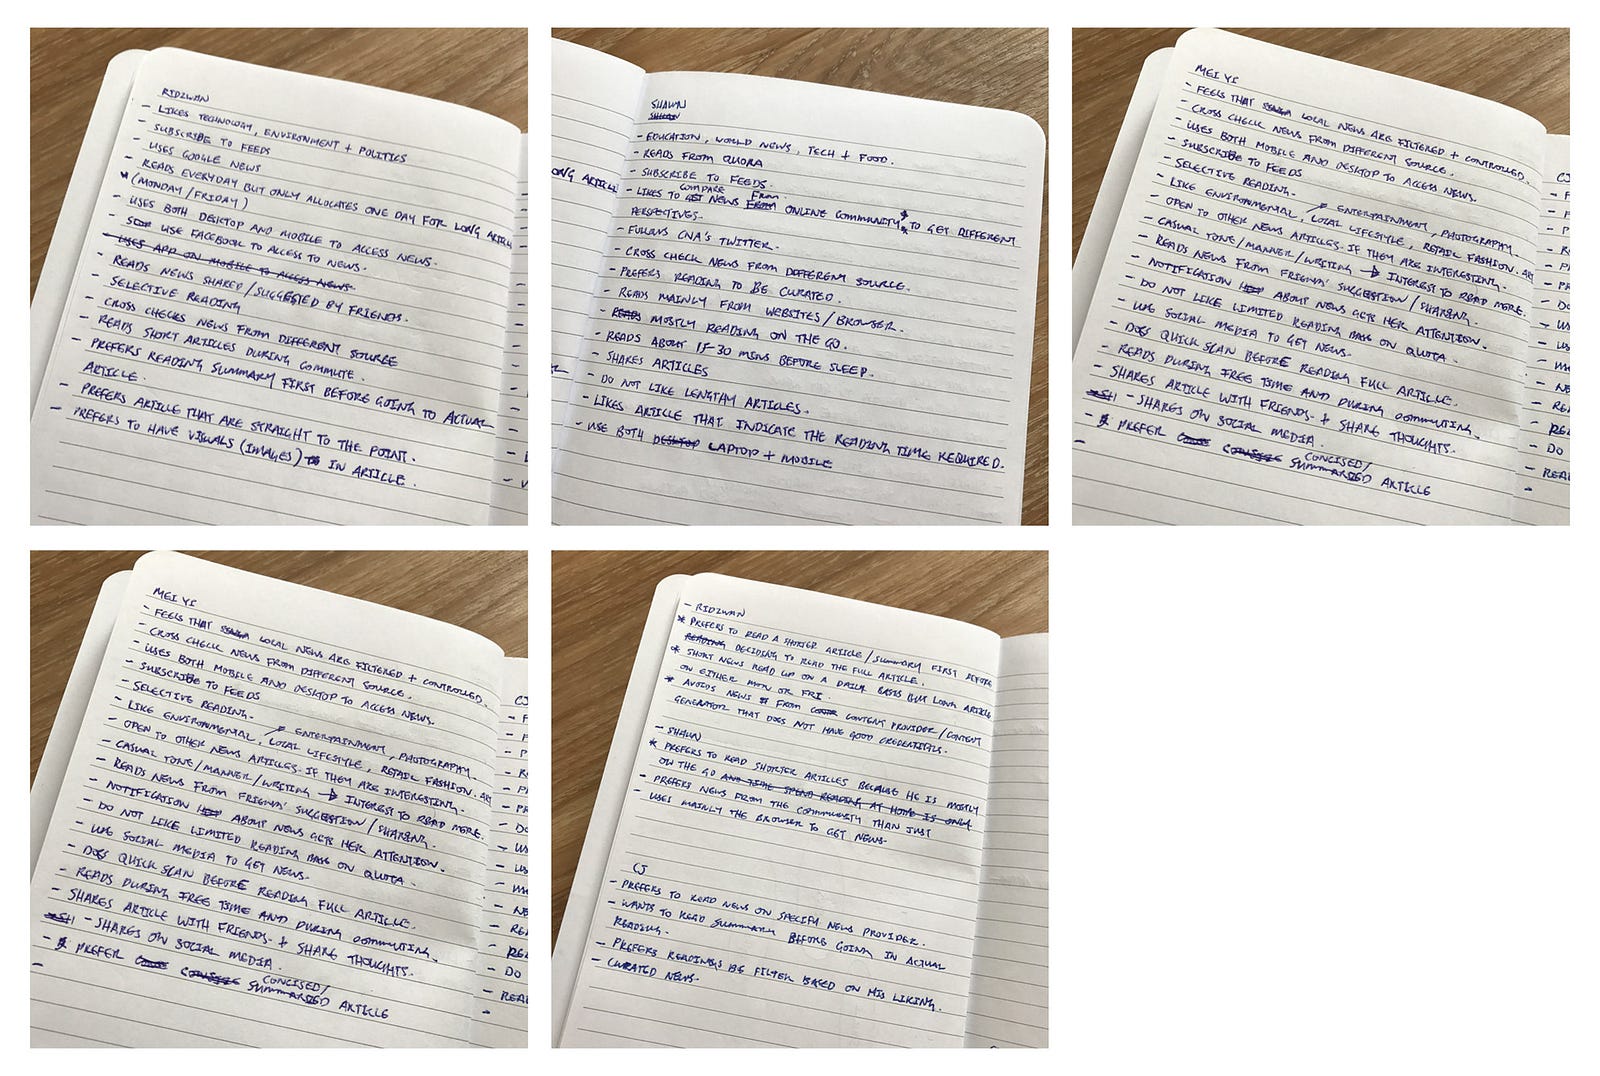 RIDZWAN
- LIKES TECHNOLOGY, ENVIRONMENT + POLITICS
- SUBSCRIBE TO FEEDS
- USES GOOGLE NEWS
- READS EVERYDAY BUT ONLY ALLOCATES ONE DAY FOR LONG ARTICLE
(MONDAY/FRIDAY)
- USES BOTH DESKTOP AND MOBILE TO ACCESS NEWS.
- USE FACEBOOK TO ACCESS TO NEWS.
- USES APP ON MOBILE TO ACCESS NEWS.
- READS NEWS SHARED/SUGGESTED BY FRIENDS.
- SELECTIVE READING
- CROSS CHECKS NEWS FROM DIFFERENT SOURCE
- READS SHORT ARTICLES DURING COMMUTE.
- PREFERS READING SUMMARY FIRST BEFORE GOING TO ACTUAL
ARTICLE.
- PREFERS ARTICLE THAT ARE STRAIGHT TO THE POINT.
- PREFERS TO HAVE VISUALS (IMAGES) IN ARTICLE.
SHAWN
- EDUCATION, WORLD NEWS, TECH + FOOD.
- READS FROM QUORA
- SUBSCRIBE TO FEEDS.
- LIKES TO COMPARE NEWS FROM ONLINE COMMUNITY TO GET DIFFERENT
PERSPECTIVES.
- FOLLOWS CNA'S TWITTER.
- CROSS CHECK NEWS FROM DIFFERENT SOURCE.
- PREFERS READING TO BE CURATED.
- READS MAINLY FROM WEBSITES/BROWSER.
- READS MOSTLY READING ON THE GO.
- READS ABOUT 15-30 MINS BEFORE SLEEP.
- SHARES ARTICLES
- DO NOT LIKE LENGTHY ARTICLES.
- LIKES ARTICLE THAT INDICATE THE READING TIME REQUIRED.
- USE BOTH DESKTOP LAPTOP + MOBILE
MEI YI
- FEELS THAT LOCAL NEWS ARE FILTERED + CONTROLLED.
- CROSS CHECK NEWS FROM DIFFERENT SOURCE.
- USES BOTH MOBILE AND DESKTOP TO ACCESS NEWS.
- SUBSCRIBE TO FEEDS
- SELECTIVE READING.
- LIKE ENVIRONMENTAL, LOCAL LIFESTYLE, RETAIL FASHION, ART
ENTERTAINMENT, PHOTOGRAPHY
- OPEN TO OTHER NEWS ARTICLES. IF THEY ARE INTERESTING.
- CASUAL TONE/MANNER/WRITING → INTEREST TO READ MORE.
- READS NEWS FROM FRIENDS' SUGGESTION/SHARING.
- NOTIFICATION ABOUT NEWS GETS HER ATTENTION.
- DO NOT LIKE LIMITED READING BASE ON QUOTA.
- USE SOCIAL MEDIA TO GET NEWS.
- DOES QUICK SCAN BEFORE READING FULL ARTICLE.
- READS DURING FREE TIME AND DURING COMMUTING.
- SHARES ARTICLE WITH FRIENDS. + SHARE THOUGHTS.
- SHARES ON SOCIAL MEDIA.
- PREFER CONCISED/
SUMMARIZED ARTICLE
MEI YI
- FEELS THAT LOCAL NEWS ARE FILTERED + CONTROLLED.
- CROSS CHECK NEWS FROM DIFFERENT SOURCE.
- USES BOTH MOBILE AND DESKTOP TO ACCESS NEWS.
- SUBSCRIBE TO FEEDS
- SELECTIVE READING.
- LIKE ENVIRONMENTAL, LOCAL LIFESTYLE, RETAIL FASHION, ART
ENTERTAINMENT, PHOTOGRAPHY
- OPEN TO OTHER NEWS ARTICLES. IF THEY ARE INTERESTING.
- CASUAL TONE/MANNER/WRITING → INTEREST TO READ MORE.
- READS NEWS FROM FRIENDS' SUGGESTION/SHARING.
- NOTIFICATION ABOUT NEWS GETS HER ATTENTION.
- DO NOT LIKE LIMITED READING BASE ON QUOTA.
- USE SOCIAL MEDIA TO GET NEWS.
- DOES QUICK SCAN BEFORE READING FULL ARTICLE.
- READS DURING FREE TIME AND DURING COMMUTING.
- SHARES ARTICLE WITH FRIENDS. + SHARE THOUGHTS.
- SHARES ON SOCIAL MEDIA.
- PREFER CONCISED/
SUMMARIZED ARTICLE
- RIDZWAN
* PREFERS TO READ A SHORTER ARTICLE/SUMMARY FIRST BEFORE
READING DECIDING TO READ THE FULL ARTICLE.
* SHORT NEWS READ UP ON A DAILY BASIS BUT LONG ARTICLE
ON EITHER MON OR FRI.
* AVOIDS NEWS FROM CONTENT PROVIDER/CONTENT
GENERATOR THAT DOES NOT HAVE GOOD CREDENTIALS.
- SHAWN
* PREFERS TO READ SHORTER ARTICLES BECAUSE HE IS MOSTLY
ON THE GO AND TIME SPEND READING AT HOME IS ONLY
- PREFERS NEWS FROM THE COMMUNITY THAN JUST
- USES MAINLY THE BROWSER TO GET NEWS.
CJ
- PREFERS TO READ NEWS ON SPECIFY NEWS PROVIDER.
- WANTS TO READ SUMMARY BEFORE GOING IN ACTUAL
READING.
- PREFERS READINGS BE FILTER BASED ON HIS LIKING.
- CURATED NEWS.